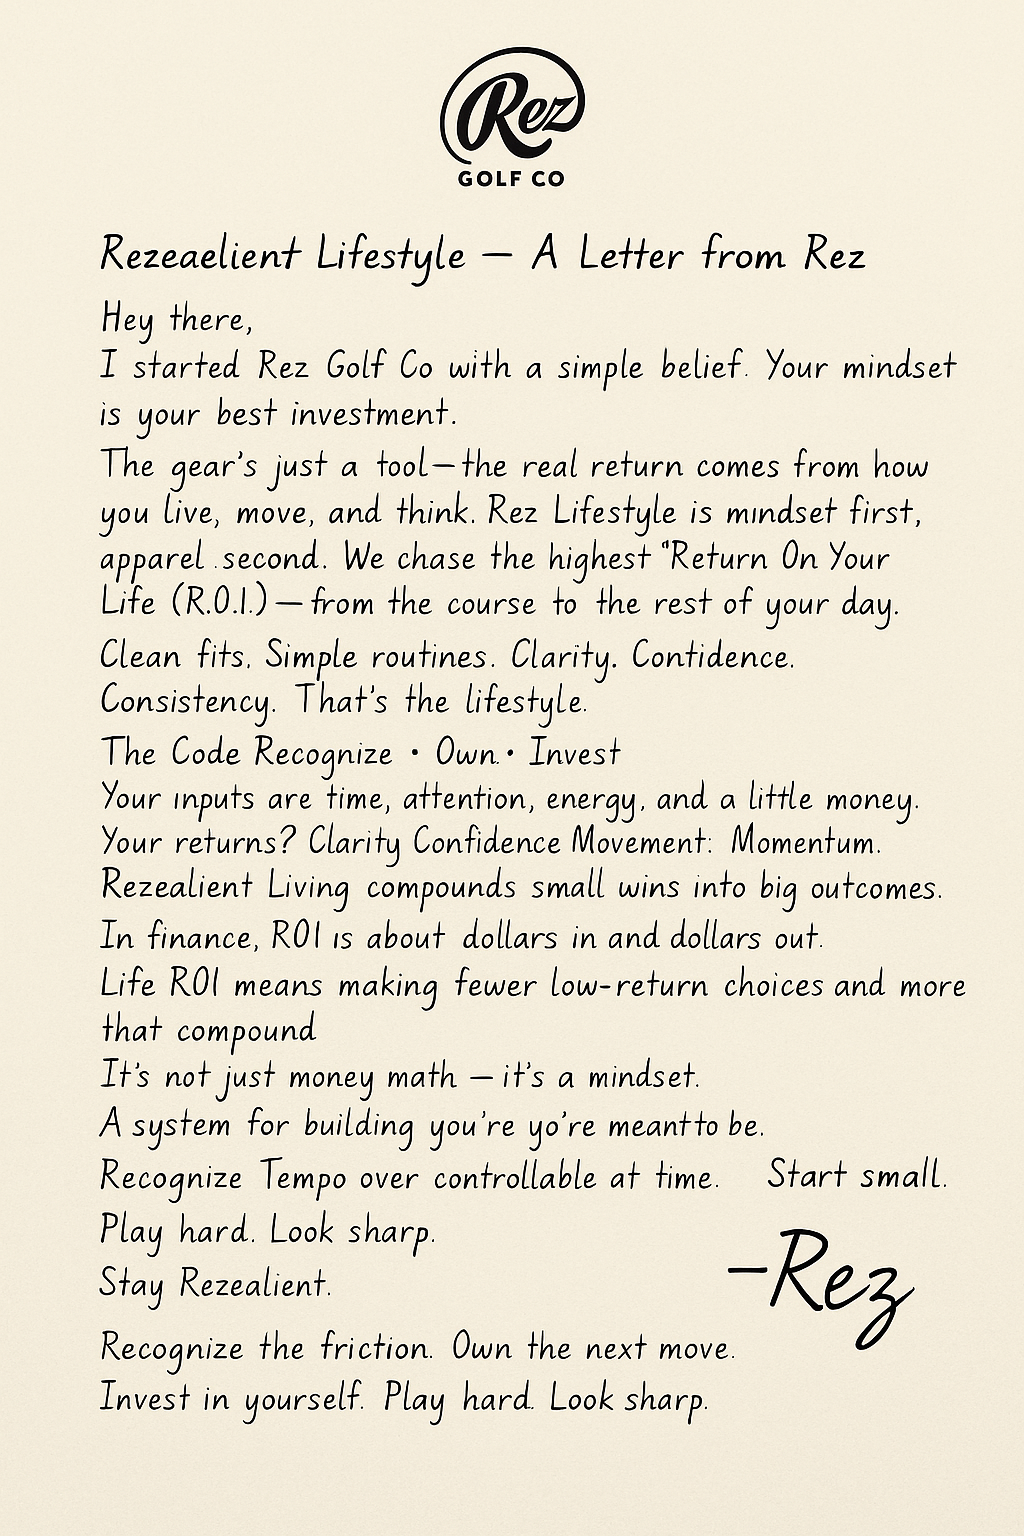 Rez
GOLF CO
Rezeaelient Lifestyle — A Letter from Rez
Hey there,
I started Rez Golf Co with a simple belief. Your mindset
is your best investment.
The gear's just a tool—the real return comes from how
you live, move, and think. Rez Lifestyle is mındset first,
apparel .second. We chase the highest "Return On Your
Life (R.O.I.) — from the course to the rest of your day.
Clean fits. Simple routines. Clarity. Contidence.
Consistency. That's the lifestyle.
The Code Recognize • Own.• Invest
Your ınputs are time, attention, energy, and a little money.
Your returns? Clarity Confidence Movement: Momentum.
Rezealient Living compounds small wins into big outcomes.
In finance, ROI ıs about dollars in and dollars out.
Life ROI means making fewer low-return choices and more
that compound
It's not just money math — it's a mindset.
A system for building you're yo're meantto be.
Recognize Tempo over controllable at time. Start small.
Play hard. Look sharp.
Stay Rezealient.
–Rez
Recognize the friction. Own the next move.
Invest in yourself. Play hard. Look sharp.